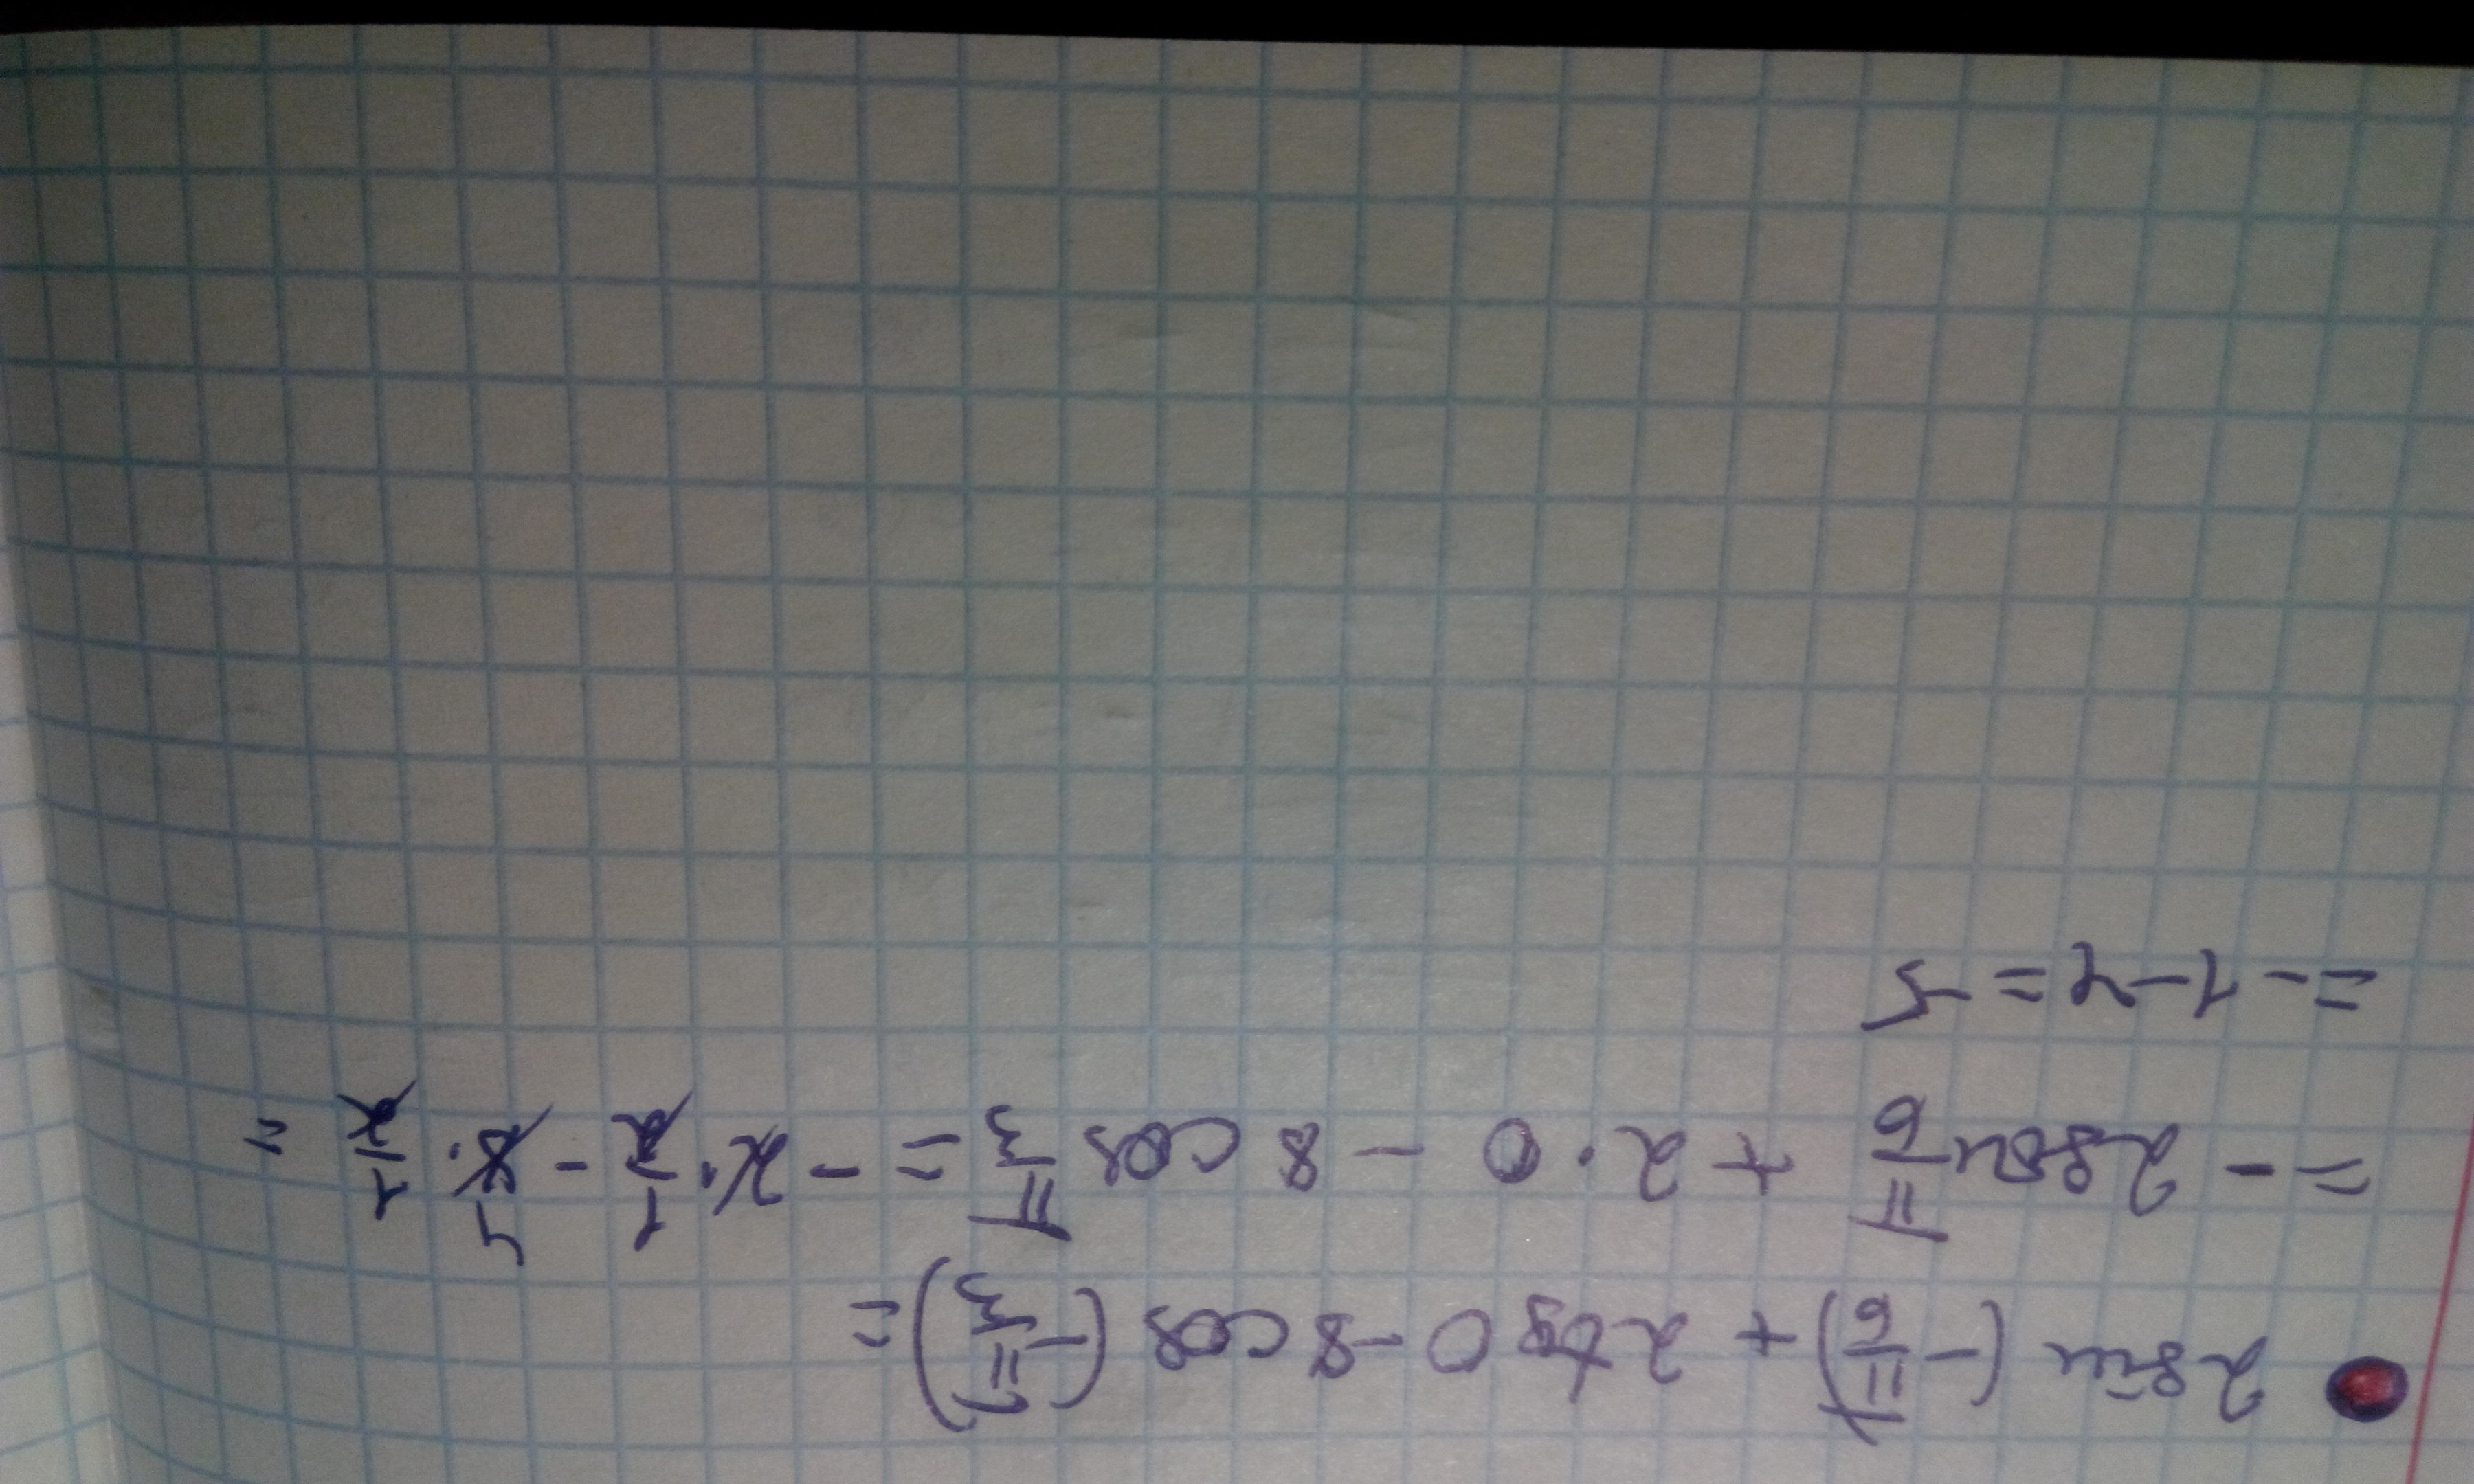 2 sin (-π/6) + 2 tg 0 - 8 cos (-π/3) =
= - 2 sin π/6 + 2 · 0 - 8 cos π/3 = - 2 · 1/2 - 8 4 · 1/2 =
= - 1 - 4 = -5